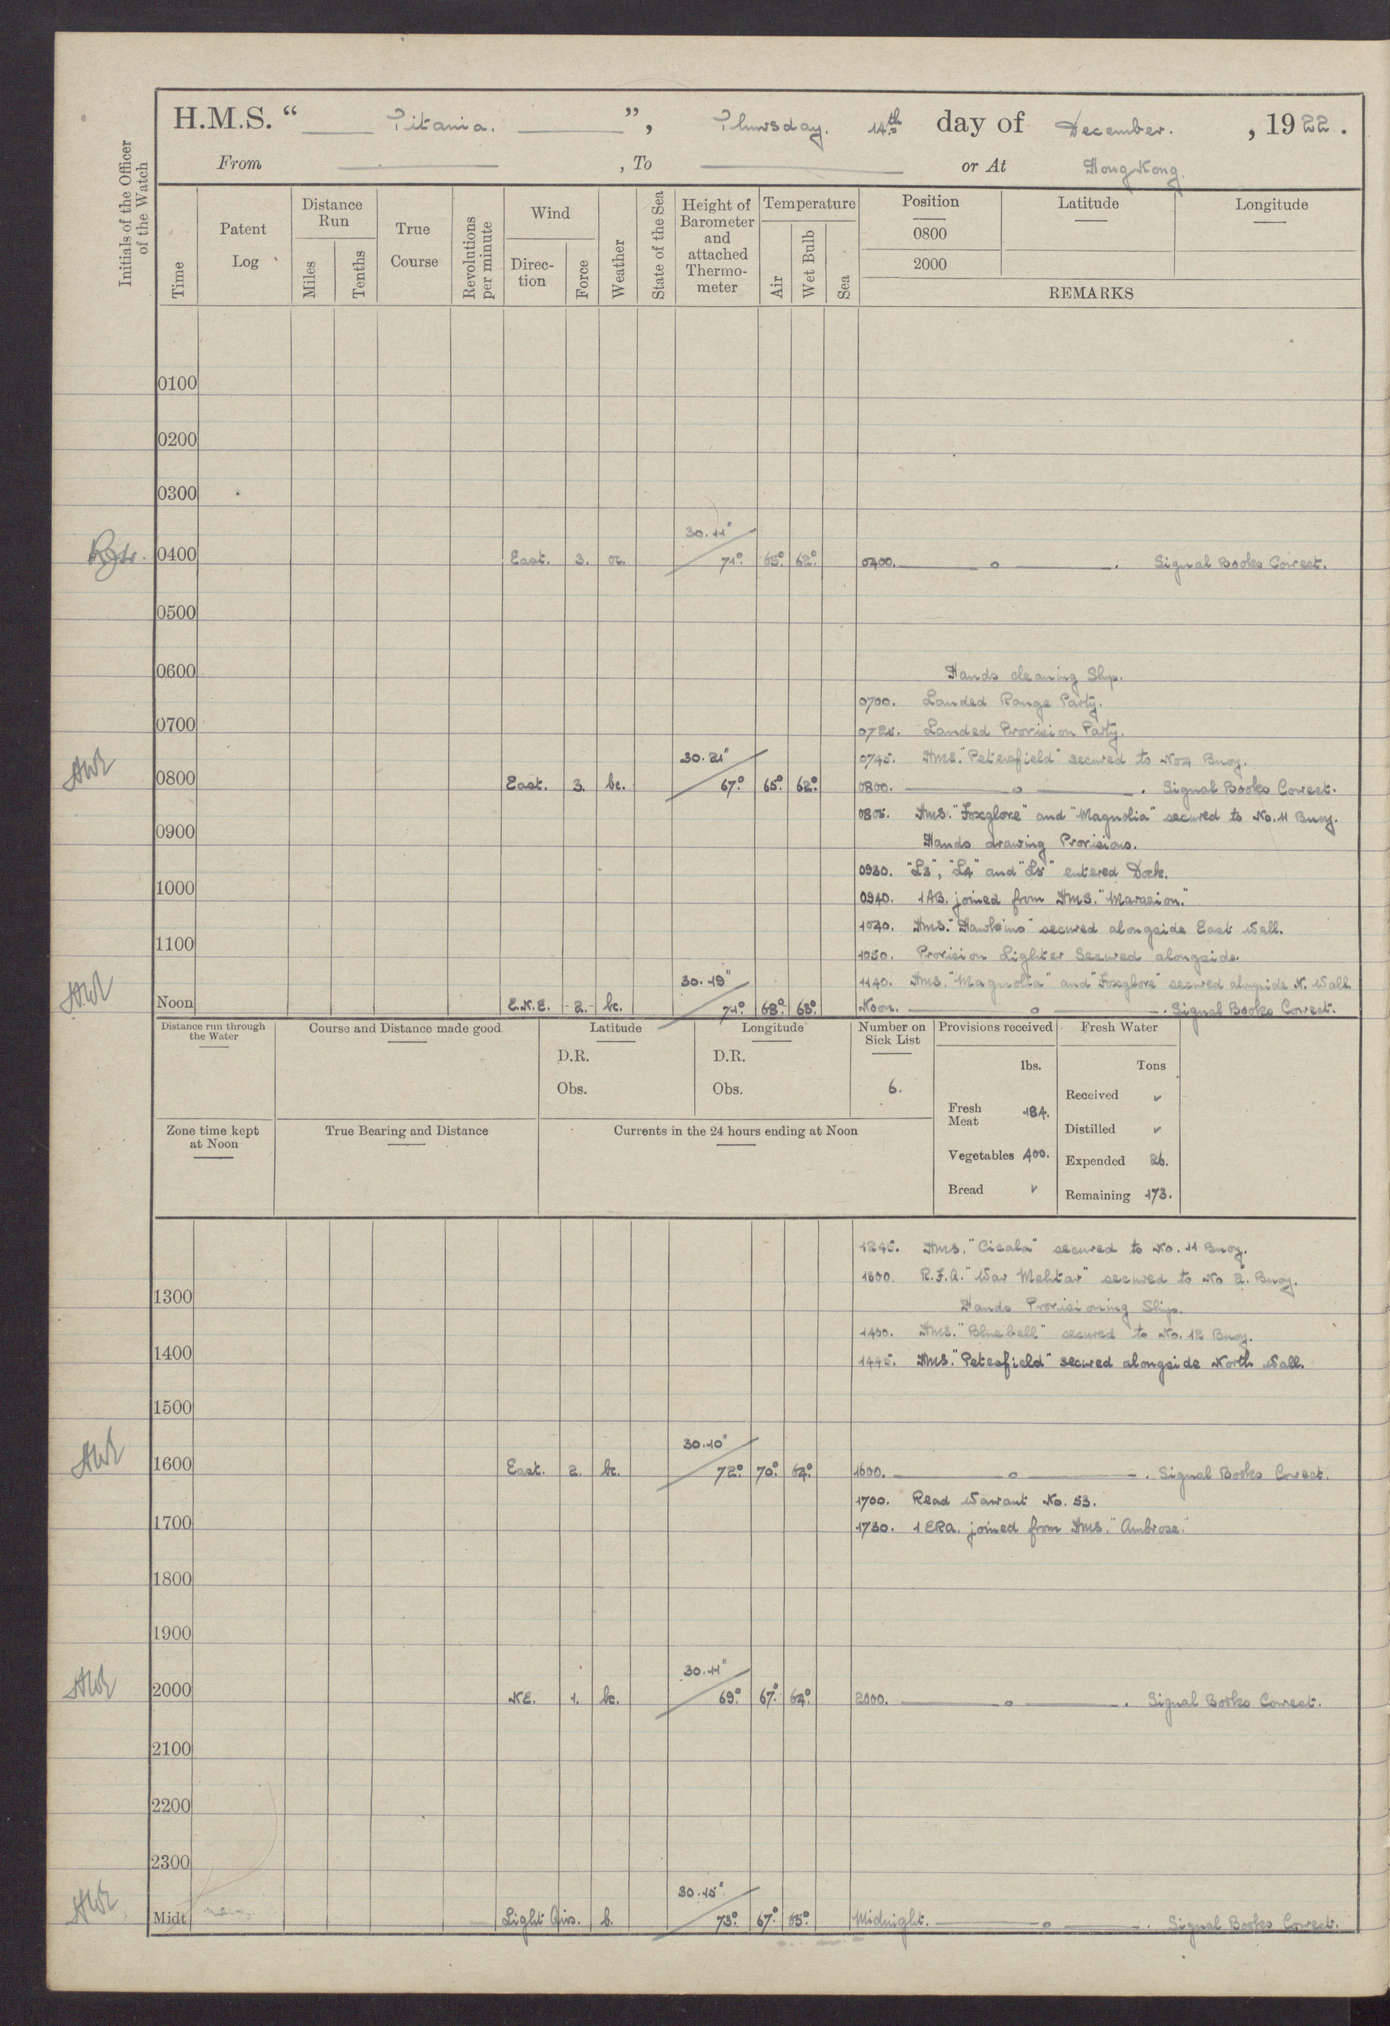 H.M.S. “ Titania. ”, Thursday. 14th day of December. , 1922.
From , To or At HongKong.
Initials of the Officer of the Watch
Time
Patent Log
Distance Run
Miles
Tenths
True Course
Revolutions per minute
Wind
Direc-tion
Force
Weather
State of the Sea
Height of Barometer and attached Thermo-meter
Temperature
Air
Wet Bulb
Sea
Position
0800
2000
Latitude
Longitude
REMARKS
0100
0200
0300
30.11"
0400 East. 3. 71° 65° 62° 0400. o . Signal Books Correct.
0500
0600
Hands cleaning Ship.
0700. Landed Range Party.
0700
0725. Landed Provision Party.
30.21"
0745. HMS. "Petersfield" secured to No4 Buoy.
AWR 0800 East. 3. bc. 67° 65° 62° 0800. o . Signal Books Correct.
0805. HMS. "Foxglove" and "Magnolia" secured to No. 11 Buoy.
0900
Hands drawing Provisions.
0930. "L3", "L4" and "L5" entered Dock.
1000
0940. 1 AB. joined from HMS. "Marazion."
1040. HMS. "Hawkins" secured alongside East Wall.
1100
1050. Provision Lighter Secured alongside.
30.19"
1140. HMS. "Magnolia" and "Foxglove" secured alongside N. Wall.
AWR Noon E.N.E. 2. bc. 71° 68° 63° Noon. o . Signal Books Correct.
Distance run through the Water
Course and Distance made good
Latitude
D.R.
Obs.
Longitude
D.R.
Obs.
Number on Sick List
6.
Provisions received
lbs.
Fresh Meat 184.
Vegetables 400.
Bread v
Fresh Water
Tons
Received v
Distilled v
Expended 26.
Remaining 173.
Zone time kept at Noon
True Bearing and Distance
Currents in the 24 hours ending at Noon
1245. HMS. "Cicala" secured to No. 11 Buoy.
1300. R.F.A. "War Mehtar" secured to No 2. Buoy.
1300
Hands Provisioning Ship.
1400. HMS. "Bluebell" secured to No. 12 Buoy.
1400
1445. HMS. "Petersfield" secured alongside North Wall.
1500
30.10"
AWR 1600 East. 2. bc. 72° 70° 64° 1600. o . Signal Books Correct.
1700. Read Warrant No. 53.
1700
1730. 1 ERA. joined from HMS. "Ambrose."
1800
1900
30.11"
AWR 2000 NE. 1. bc. 69° 67° 64° 2000. o . Signal Books Correct.
2100
2200
2300
30.15"
AWR Midt Light Airs. b. 73° 67° 65° Midnight. o . Signal Books Correct.